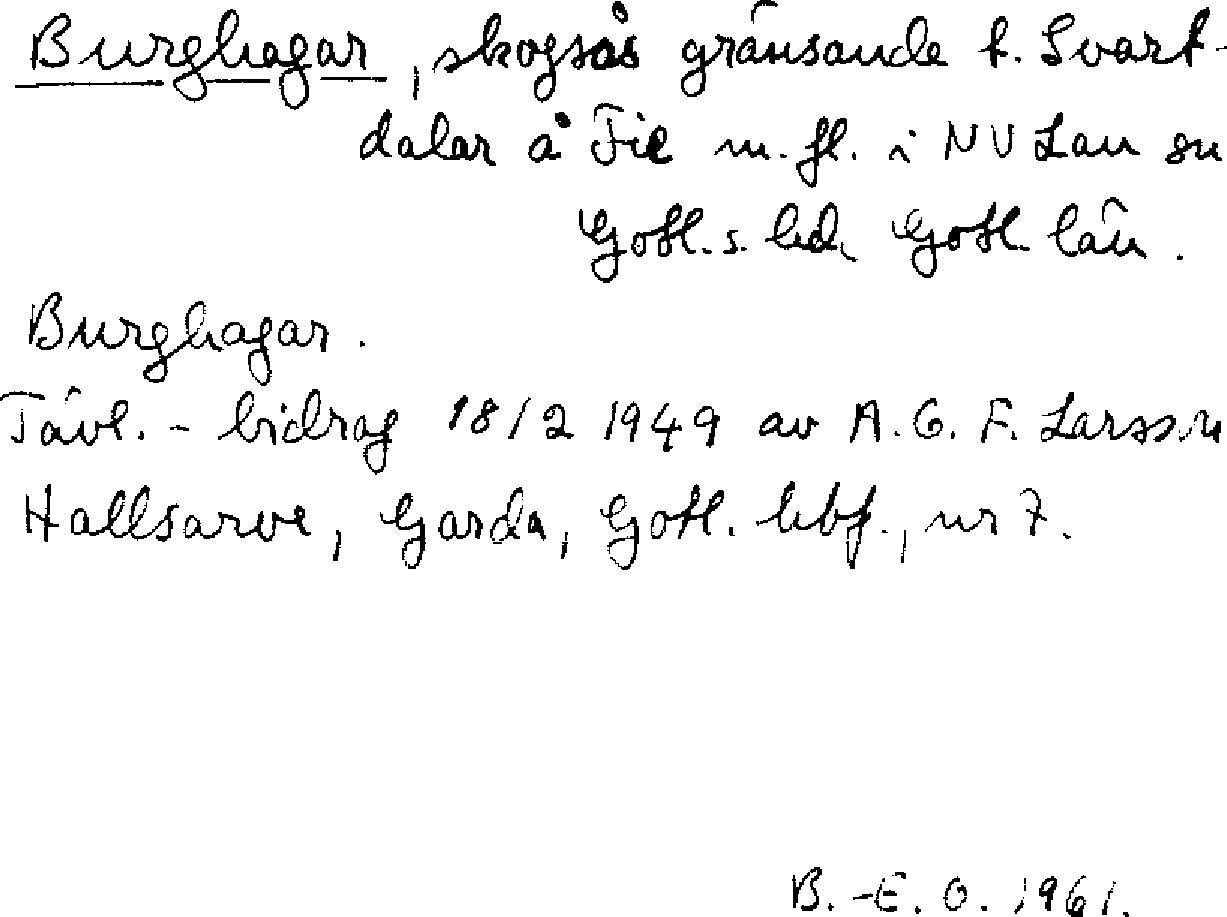 Burghagar, skogsås gränsande t. Svart-
dalar å Fie m. fl. i NV Lau sn
Gotl. s. hd. Gotl. län.
Burghagar.
Tävl. - bidrag 18/2 1949 av A. G. F. Larsson
Hallsarve, Garda, Gotl. hbf., nr 7.
B. -E. O. 1961.